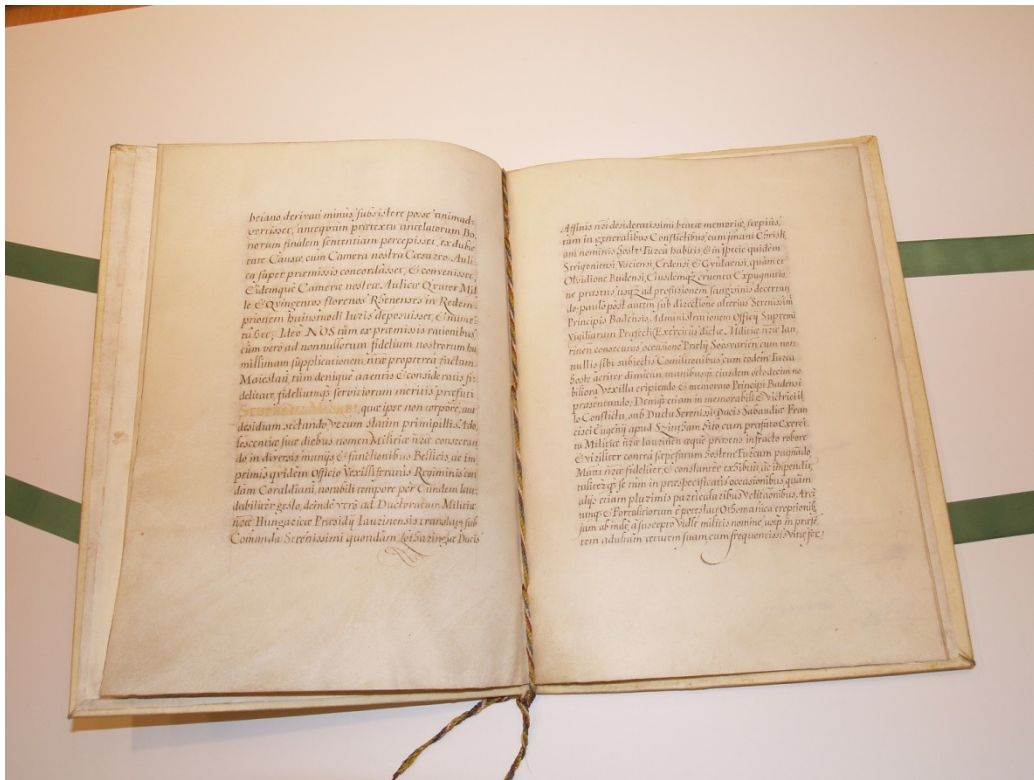 beiano derivari minus subsistere posse animad-
vertisset, antequam prætextu antelatorum Bo,
norum finalem sententiam percepisset, ex dubie
tate Causæ, cum Camera nostra Cæsareo-Auli,
ca super præmissis concordasset, & convenisset,
Eidemque Cameræ nostræ Aulicæ Qvater Mil
le & Qvingentos florenos Rhenenses in Redem
ptionem huiusmodi Iuris deposuisset, & nume,
Ideo NOS tùm ex præmissis rationibus
cùm verò ad nonnullorum fidelium nostrorum hu
millimam supplicationem nr̃æ propterea factam
Maiestati, tùm denique attentis & consideratis fi-
delitate, fidelumqꝫ servitiorum meritis præfati
que ipse non torpore, aut
desidiam sectando verùm statim primipilis Ado,
lescentiæ suæ diebus nomen Militiæ nr̃æ consecran
do in diversis munijs & functionibus Bellicis, ac im
primis quidem Officio Vexilliferatus Regiminis cu
dam Coraldiani, notabili tempore per Eundem lau,
dabiliter gesto, deinde verò ad Ductoratum Militiæ
nr̃æ Hungaricæ Præsidij Iaurinensis translatus sub
Comando Serenissimi quondam Lotharingiæ Ducis
Affinis nr̃i desideratissimi beatæ memoriæ, sæpius,
tum in generalibus Conflictibus cum jmani Christi
ani nominis Hoste Turca habitis & in specie quidem
Strigoniensi Vaciensi, Erdensi & quàm et
Obsidione Budensi, Eiusdemqꝫ cruenta Expugnatio
ne præsens usqꝫ ad profusionem sanguinis decertan
do, paulò post autem sub directione alterius Serenissimi
Principis Badensis, Administrationem Officij Supremi
Vigiliarum Exercitus dictæ Militiæ nr̃æ Iau
rinen consecutus, occasione Prælij cum non
nullis sibi subiectis Comilitonibus cum eodem Turca
Hoste acriter dimicans manibusqꝫ eiusdem octodecim no
biliora Vexilla eripiendo, & memorato Principi Badensi
præsentando; Deniqꝫ etiam in memorabili & victrici il
lo Conflictu, sub Ductu Serenissi Ducis Sabaudiæ Fran
cisci Eugenij apud Szintham Sito, cum præfato Exerci
tu Militiæ nr̃æ Iaurinen æquè præsens infracto robore
& viriliter contra Hostem Turcam pugnādo
Matti nr̃æ fideliter, & constanter exhibuit, ac impendit;
taliterqꝫ se tùm in præspecificatis occasionibus quàm
alijs etiam plurimis particularibus Velitationibus, Arci
umqꝫ & Fortalitiorum è potestate Othomanica ereptionib,
jam ab inde à suscepto Vidlt militis nomine usqꝫ in præse,
tem adultam ætatem suam cum frequentissis Vitæ for